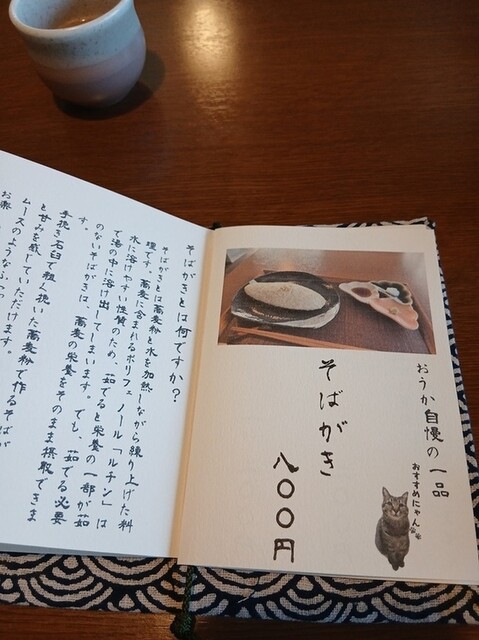 おうか自慢の一品
おすすめにゃん
そばがき
八〇〇円
そばがきとは何ですか?
そばがきとは蕎麦粉と水を加熱しながら練り上げた料
理です。蕎麦に含まれるポリフェノール「ルチン」は
水に溶けやすい性質のため、茹でると栄養の一部が茹
で湯の中に溶け出してしまいます。でも、茹でる必要
のないそばがきは、蕎麦の栄養をそのまま摂取できま
す。
手挽き石臼で粗く挽いた蕎麦粉で作るそばが
と甘みを感じていただけます。
ムースのようなふ